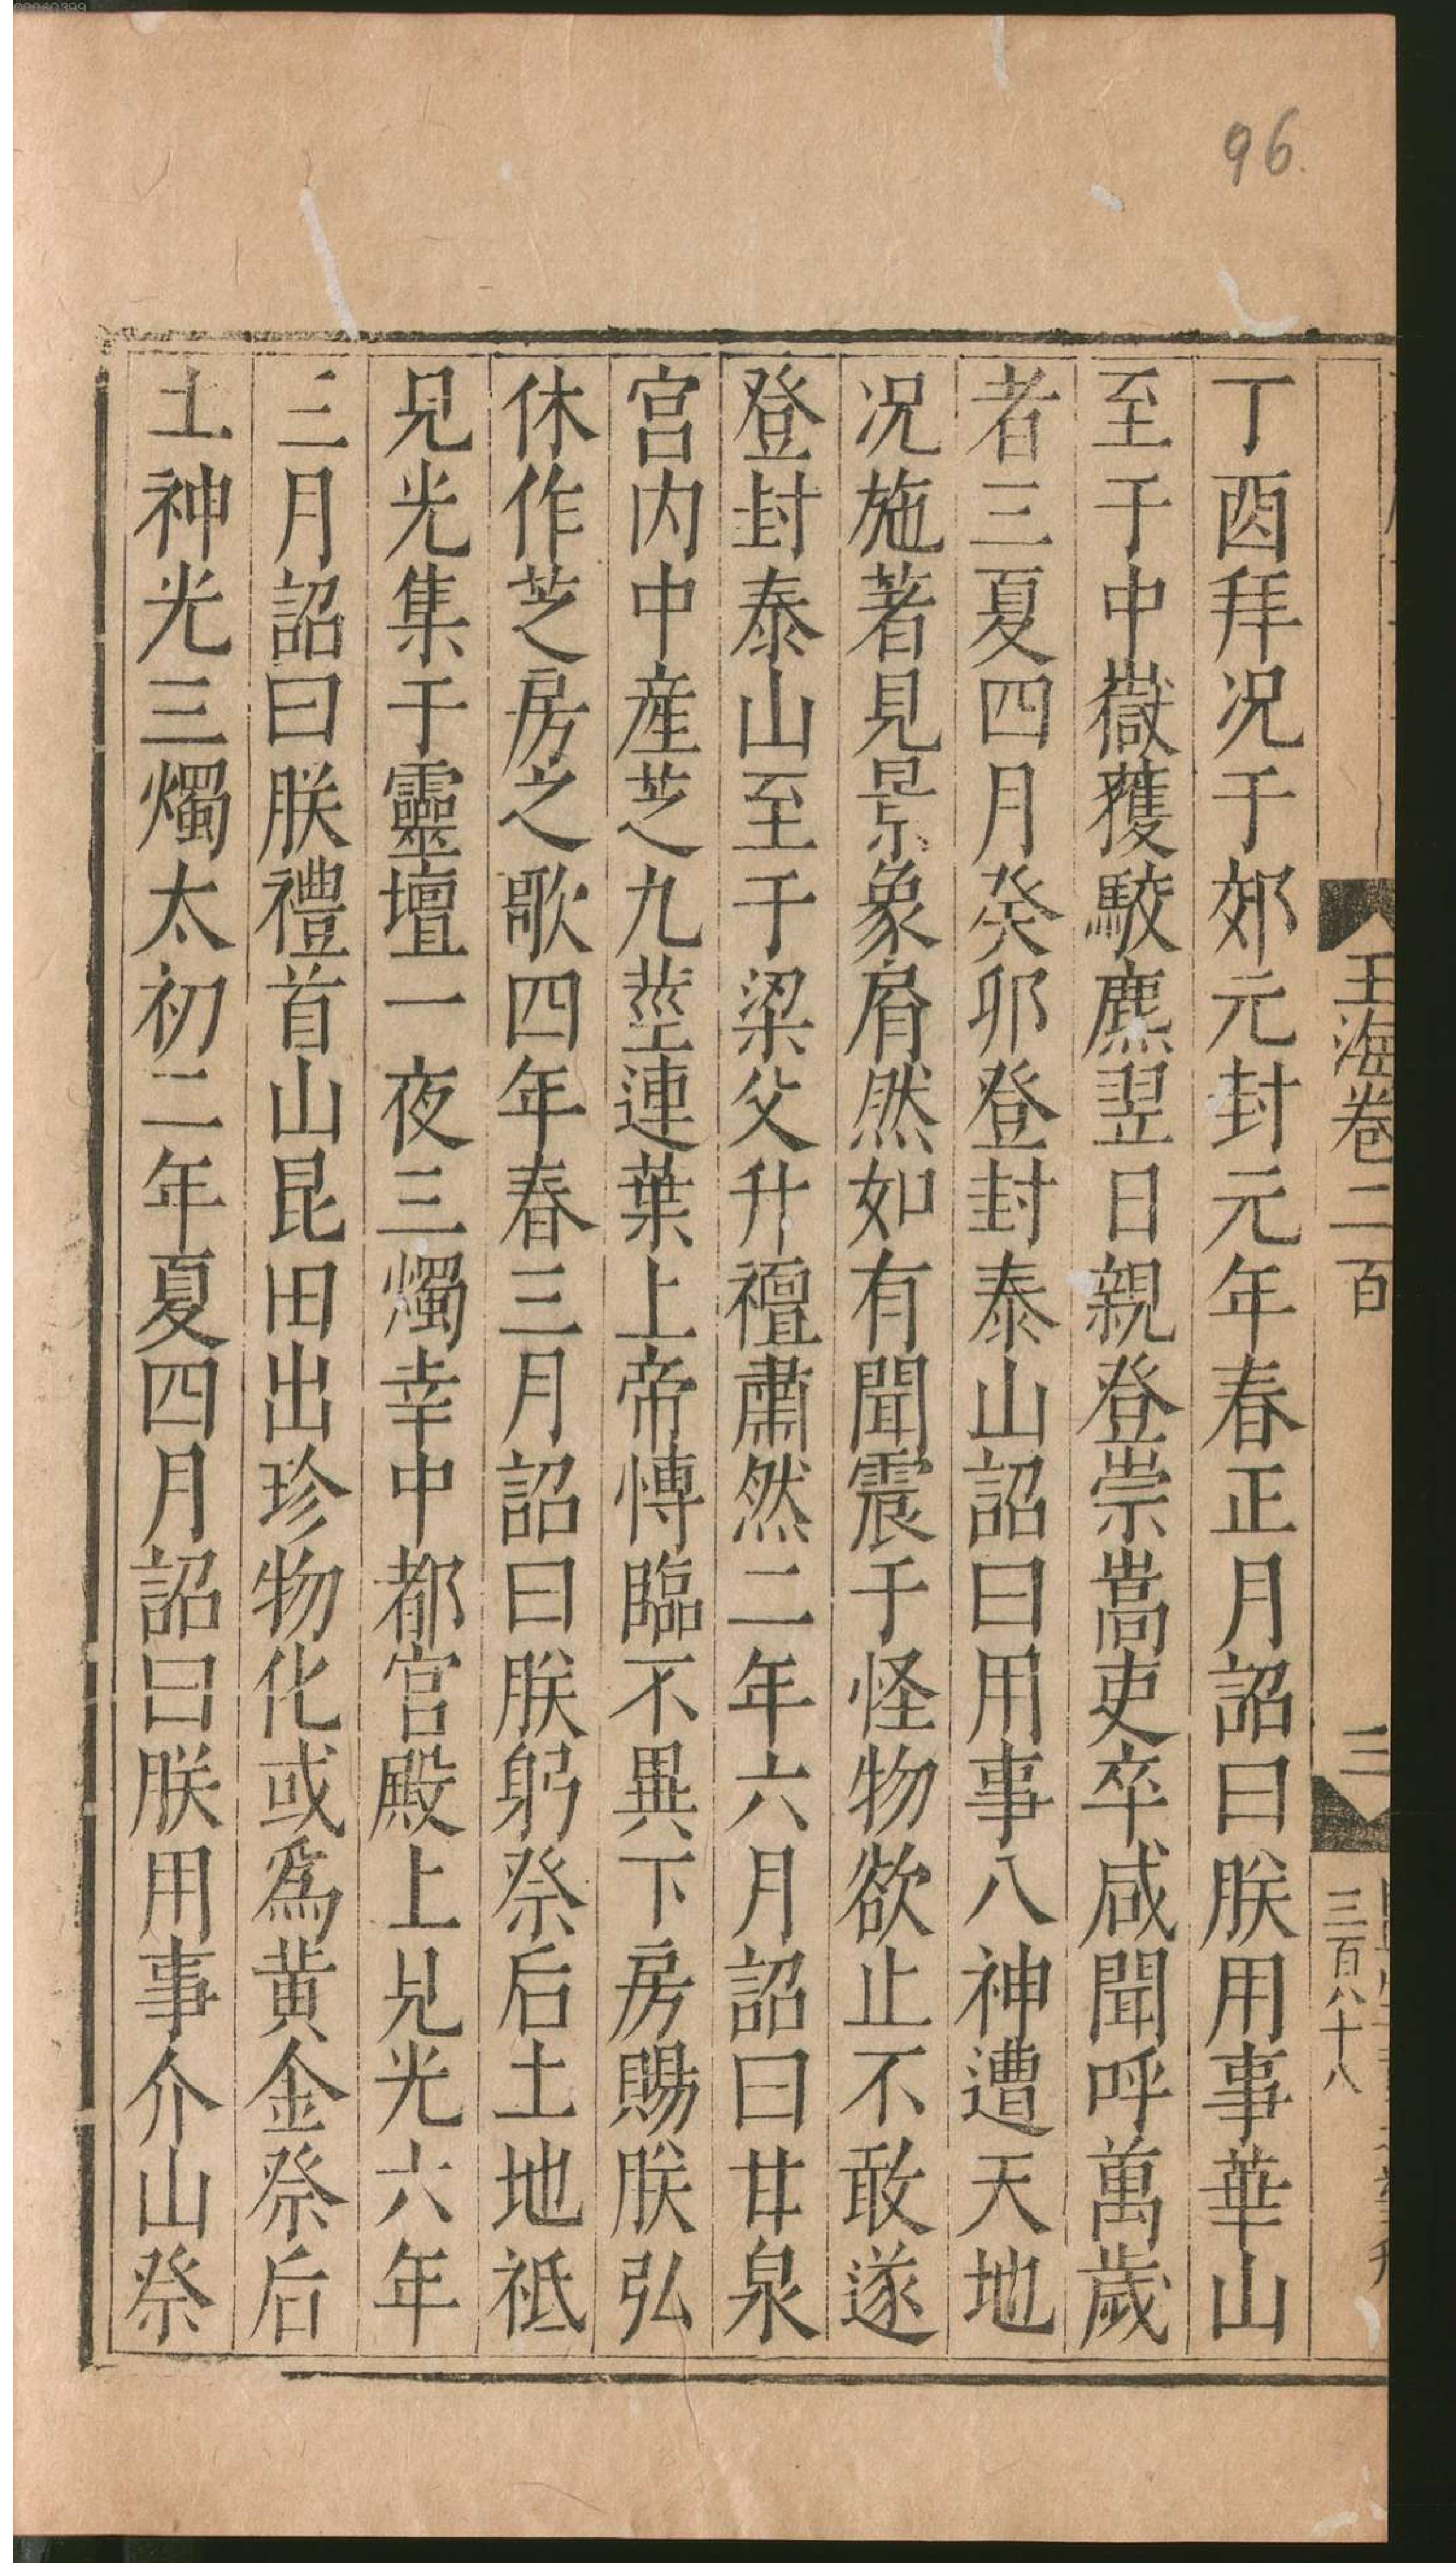 00060399
96.
玉海卷二百
三
三百八十八
丁酉拜况于郊元封元年春正月詔曰朕用事華山
至于中嶽獲駮麃翌日親登崇嵩吏卒咸聞呼萬歲
者三夏四月癸卯登封泰山詔曰用事八神遭天地
况施著見景象屑然如有聞震于怪物欲止不敢遂
登封泰山至于梁父升禪肅然二年六月詔曰甘泉
宮内中産芝九莖連葉上帝愽臨不異下房賜朕弘
休作芝房之歌四年春三月詔曰朕躬祭后土地祗
見光集于靈壇一夜三燭幸中都宮殿上見光六年
三月詔曰朕禮首山昆田出珍物化或爲黄金祭后
土神光三燭太初二年夏四月詔曰朕用事介山祭